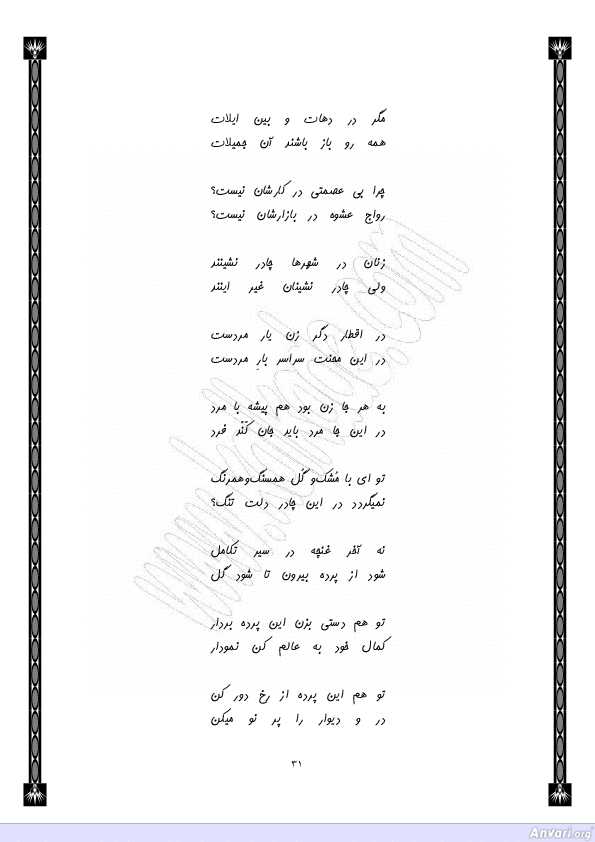 مگر در دهات و بین ایلات
همه رو باز باشند آن جمیلات
چرا بی عصمتی در کارشان نیست؟
رواج عشوه در بازارشان نیست؟
زنان در شهرها چادر نشینند
ولی چادر نشینان غیر اینند
در اقطار دگر زن یار مردست
در این محنت سراسر بارِ مردست
به هر جا زن بود هم پیشه با مرد
در این جا مرد باید جان کَنَد فرد
تو ای با مُشک‌و گُل همسنگ‌وهمرنگ
نمیگردد در این چادر دلت تنگ؟
نه آخر غنچه در سیر تکامل
شود از پرده بیرون تا شود گل
تو هم دستی بزن این پرده بردار
کمال خود به عالم کن نمودار
تو هم این پرده از رخ دور کن
در و دیوار را پر نو میکن
۳۱
Anvari.org